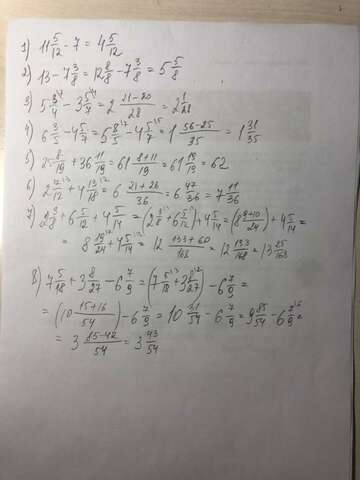 1) 11 5/12 - 7 = 4 5/12
2) 13 - 7 3/8 = 12 8/8 - 7 3/8 = 5 5/8
3) 5 3/4 - 3 5/7 = 2 21-20/28 = 2 1/28
4) 6 3/5 - 4 5/7 = 5 8/5 - 4 5/7 = 1 56-25/35 = 1 31/35
5) 25 8/19 + 36 11/19 = 61 8+11/19 = 61 19/19 = 62
6) 2 7/12 + 4 13/18 = 6 21+26/36 = 6 47/36 = 7 11/36
7) 2 3/8 + 6 5/12 + 4 5/14 = (2 3/8 + 6 5/12) + 4 5/14 = (8 9+10/24) + 4 5/14 =
= 8 19/24 + 4 5/14 = 12 133+60/168
8) 7 5/18 + 3 8/27 - 6 7/9 = (7 5/18 + 3 8/27) - 6 7/9 =
= (10 15+16/54) - 6 7/9 = 10 31/54 - 6 7/9 = 9 85/54 - 6 7/9 =
= 3 85-42/54 = 3 43/54